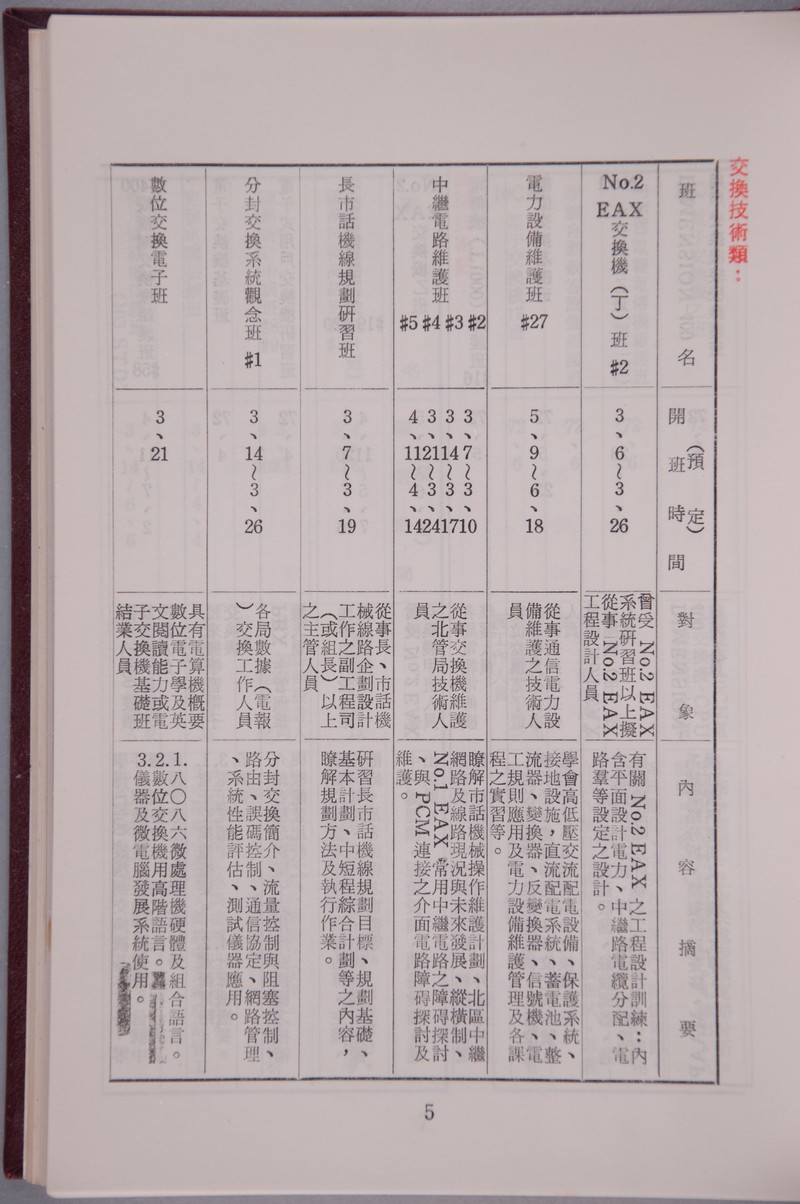 交換技術類：
班名
開班時間
（預定）
對象
內容摘要
No.2
EAX
交換機（丁）班 #2
3、6～3、26
曾受 No.2 EAX
系統硏習班以上擬
從事 No.2 EAX
工程設計人員
有關 No.2 EAX 之工程設計訓練：內
含平面設計電力、中繼路電纜分配、電
路羣等設定之設計。
電力設備維護班 #27
5、9～6、18
從事通信電力設
備維護之技術人
員
學會高低壓交流配電設備、保護系統、
接地設施，直流配電系統、蓄電池、整
流器、變換器、反變換器、信號機、電
工規則應用及電力設備維護管理及各課
程之實習等。
中繼電路維護班
#5 #4 #3 #2
3、7～3、10
3、14～3、17
3、21～3、24
4、11～4、14
從事交換機維護
之北管局技術人
員
瞭解市話機械操作維護計劃、北區中繼
網路及線路現況與未來發展、縱橫制、
No.1 EAX 常用中繼電路之障碍探討、
與 PCM 連接之介面電路障碍探討及
維護。
長市話機線規劃硏習班
3、7～3、19
從事長、市話機
械線路企劃設計
工作之副工程司
（或組長）以上
之主管人員
硏習長市話機線規劃目標、規劃基礎、
基本計劃、中短程綜合計劃等之內容，
瞭解規劃方法及執行作業。
分封交換系統觀念班 #1
3、14～3、26
各局數據（電報
）交換工作人員
分封交換簡介、流量控制與阻塞控制、
路由、誤碼控制、通信協定、網路管理
、系統性能評估、測試儀器應用。
數位交換電子班
3、21
具有電算機概要
數位電子學及英
文閱讀能力或電
子交換機基礎班
結業人員
1.八〇八六微處理機硬體及組合語言。
2.數位交換機用高階語言。
3.儀器及微電腦發展系統使用。
5